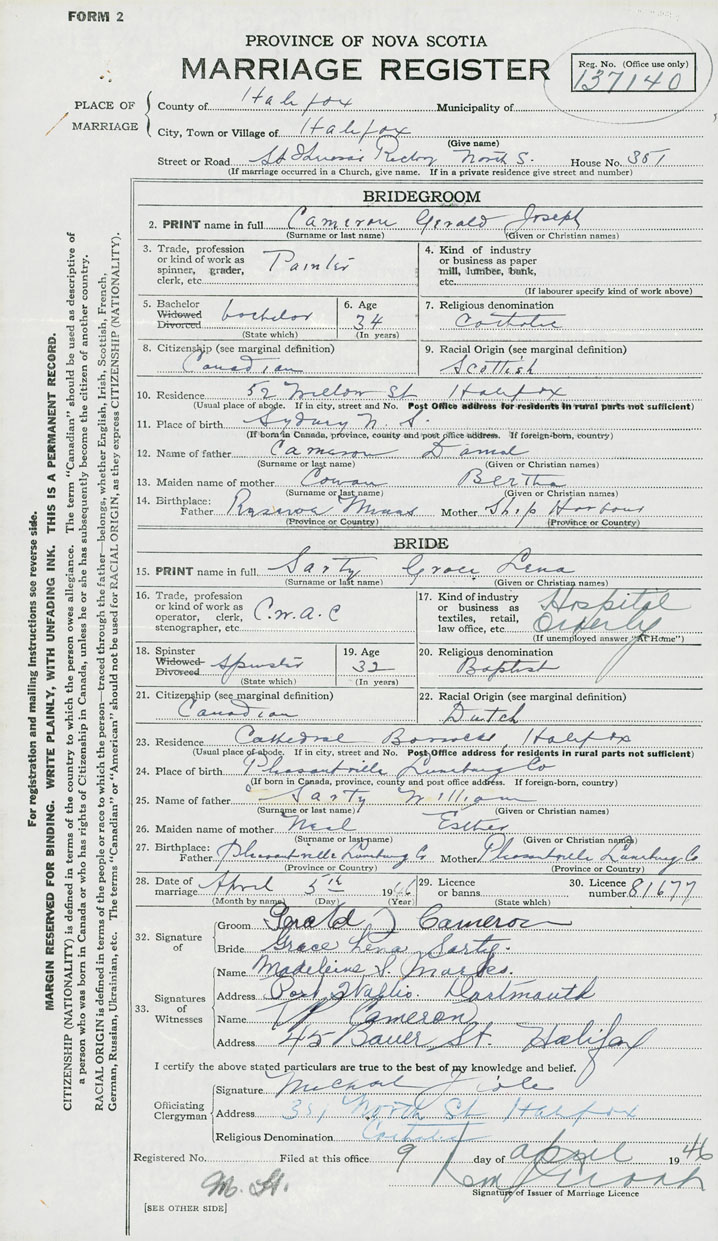 FORM 2
PROVINCE OF NOVA SCOTIA
MARRIAGE REGISTER
Reg. No. (Office use only)
137140
PLACE OF MARRIAGE
County of Halifax Municipality of
City, Town or Village of Halifax
(Give name)
Street or Road Rectory North S. House No. 351
(If marriage occurred in a Church, give name. If in a private residence give street and number)
BRIDEGROOM
2. PRINT name in full Cameron Gerald Joseph
(Surname or last name) (Given or Christian names)
3. Trade, profession or kind of work as spinner, grader, clerk, etc. Painter
4. Kind of industry or business as paper mill, lumber, bank, etc.
(If labourer specify kind of work above)
5. Bachelor Widowed Divorced bachelor
(State which)
6. Age 34
(In years)
7. Religious denomination
Catholic
8. Citizenship (see marginal definition)
Canadian
9. Racial Origin (see marginal definition)
Scottish
10. Residence 52 Willow St Halifax
(Usual place of abode. If in city, street and No. Post Office address for residents in rural parts not sufficient)
11. Place of birth Sydney N. S.
(If born in Canada, province, county and post office address. If foreign-born, country)
12. Name of father Cameron Daniel
(Surname or last name) (Given or Christian names)
13. Maiden name of mother Cowan Bertha
(Surname or last name) (Given or Christian names)
14. Birthplace: Father Reserve Mines Mother Ship Harbour
(Province or Country) (Province or Country)
BRIDE
15. PRINT name in full Sarty Grace Lena
(Surname or last name) (Given or Christian names)
16. Trade, profession or kind of work as operator, clerk, stenographer, etc. C.W.A.C
17. Kind of industry or business as textiles, retail, law office, etc. Hospital Orderly
(If unemployed answer "At Home")
18. Spinster Widowed Divorced Spinster
(State which)
19. Age 32
(In years)
20. Religious denomination
Baptist
21. Citizenship (see marginal definition)
Canadian
22. Racial Origin (see marginal definition)
Dutch
23. Residence Cathedral Barracks, Halifax
(Usual place of abode. If in city, street and No. Post Office address for residents in rural parts not sufficient)
24. Place of birth Pleasantville Lunenburg Co
(If born in Canada, province, county and post office address. If foreign-born, country)
25. Name of father Sarty William
(Surname or last name) (Given or Christian names)
26. Maiden name of mother Neal Esther
(Surname or last name) (Given or Christian names)
27. Birthplace: Father Pleasantville Lunenburg Co Mother Pleasantville Lunenburg Co
(Province or Country) (Province or Country)
28. Date of marriage April 5th 1946
(Month by name) (Day) (Year)
29. Licence or banns
(State which)
30. Licence number 81677
32. Signature of
Groom Gerald J Cameron
Bride Grace Lena Sarty.
33. Signatures of Witnesses
Name Madeleine S.
Address Port Dartmouth
Name Cameron
Address 45 Bauer St. Halifax
I certify the above stated particulars are true to the best of my knowledge and belief.
Officiating Clergyman
Signature Michael J
Address 351 North St Halifax
Religious Denomination Catholic
Registered No. Filed at this office 9 day of April 1946
Signature of Issuer of Marriage Licence
M. H.
[SEE OTHER SIDE]
For registration and mailing instructions see reverse side.
MARGIN RESERVED FOR BINDING. WRITE PLAINLY, WITH UNFADING INK. THIS IS A PERMANENT RECORD.
CITIZENSHIP (NATIONALITY) is defined in terms of the country to which the person owes allegiance. The term "Canadian" should be used as descriptive of
a person who was born in Canada or who has rights of Citizenship in Canada, unless he or she has subsequently become the citizen of another country.
RACIAL ORIGIN is defined in terms of the people or race to which the person—traced through the father—belongs, whether English, Irish, Scottish, French,
German, Russian, Ukrainian, etc. The terms "Canadian" or "American" should not be used for RACIAL ORIGIN, as they express CITIZENSHIP (NATIONALITY).